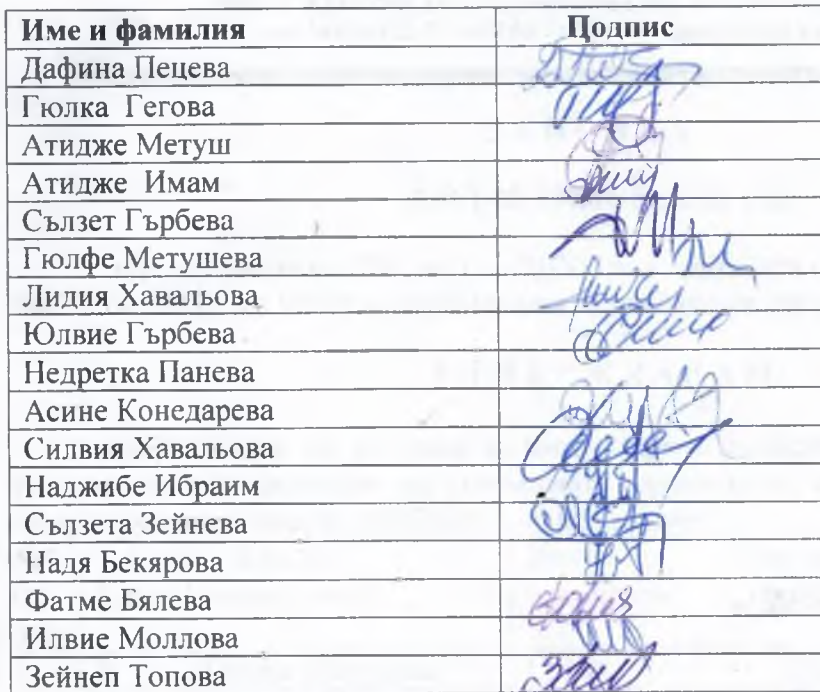 Име и фамилия Подпис
Дафина Пецева
Гюлка Гегова
Атидже Метуш
Атидже Имам
Сълзет Гърбева
Гюлфе Метушева
Лидия Хавальова
Юлвие Гърбева
Недретка Панева
Асине Конедарева
Силвия Хавальова
Наджибе Ибраим
Сълзета Зейнева
Надя Бекярова
Фатме Бялева
Илвие Моллова
Зейнеп Топова